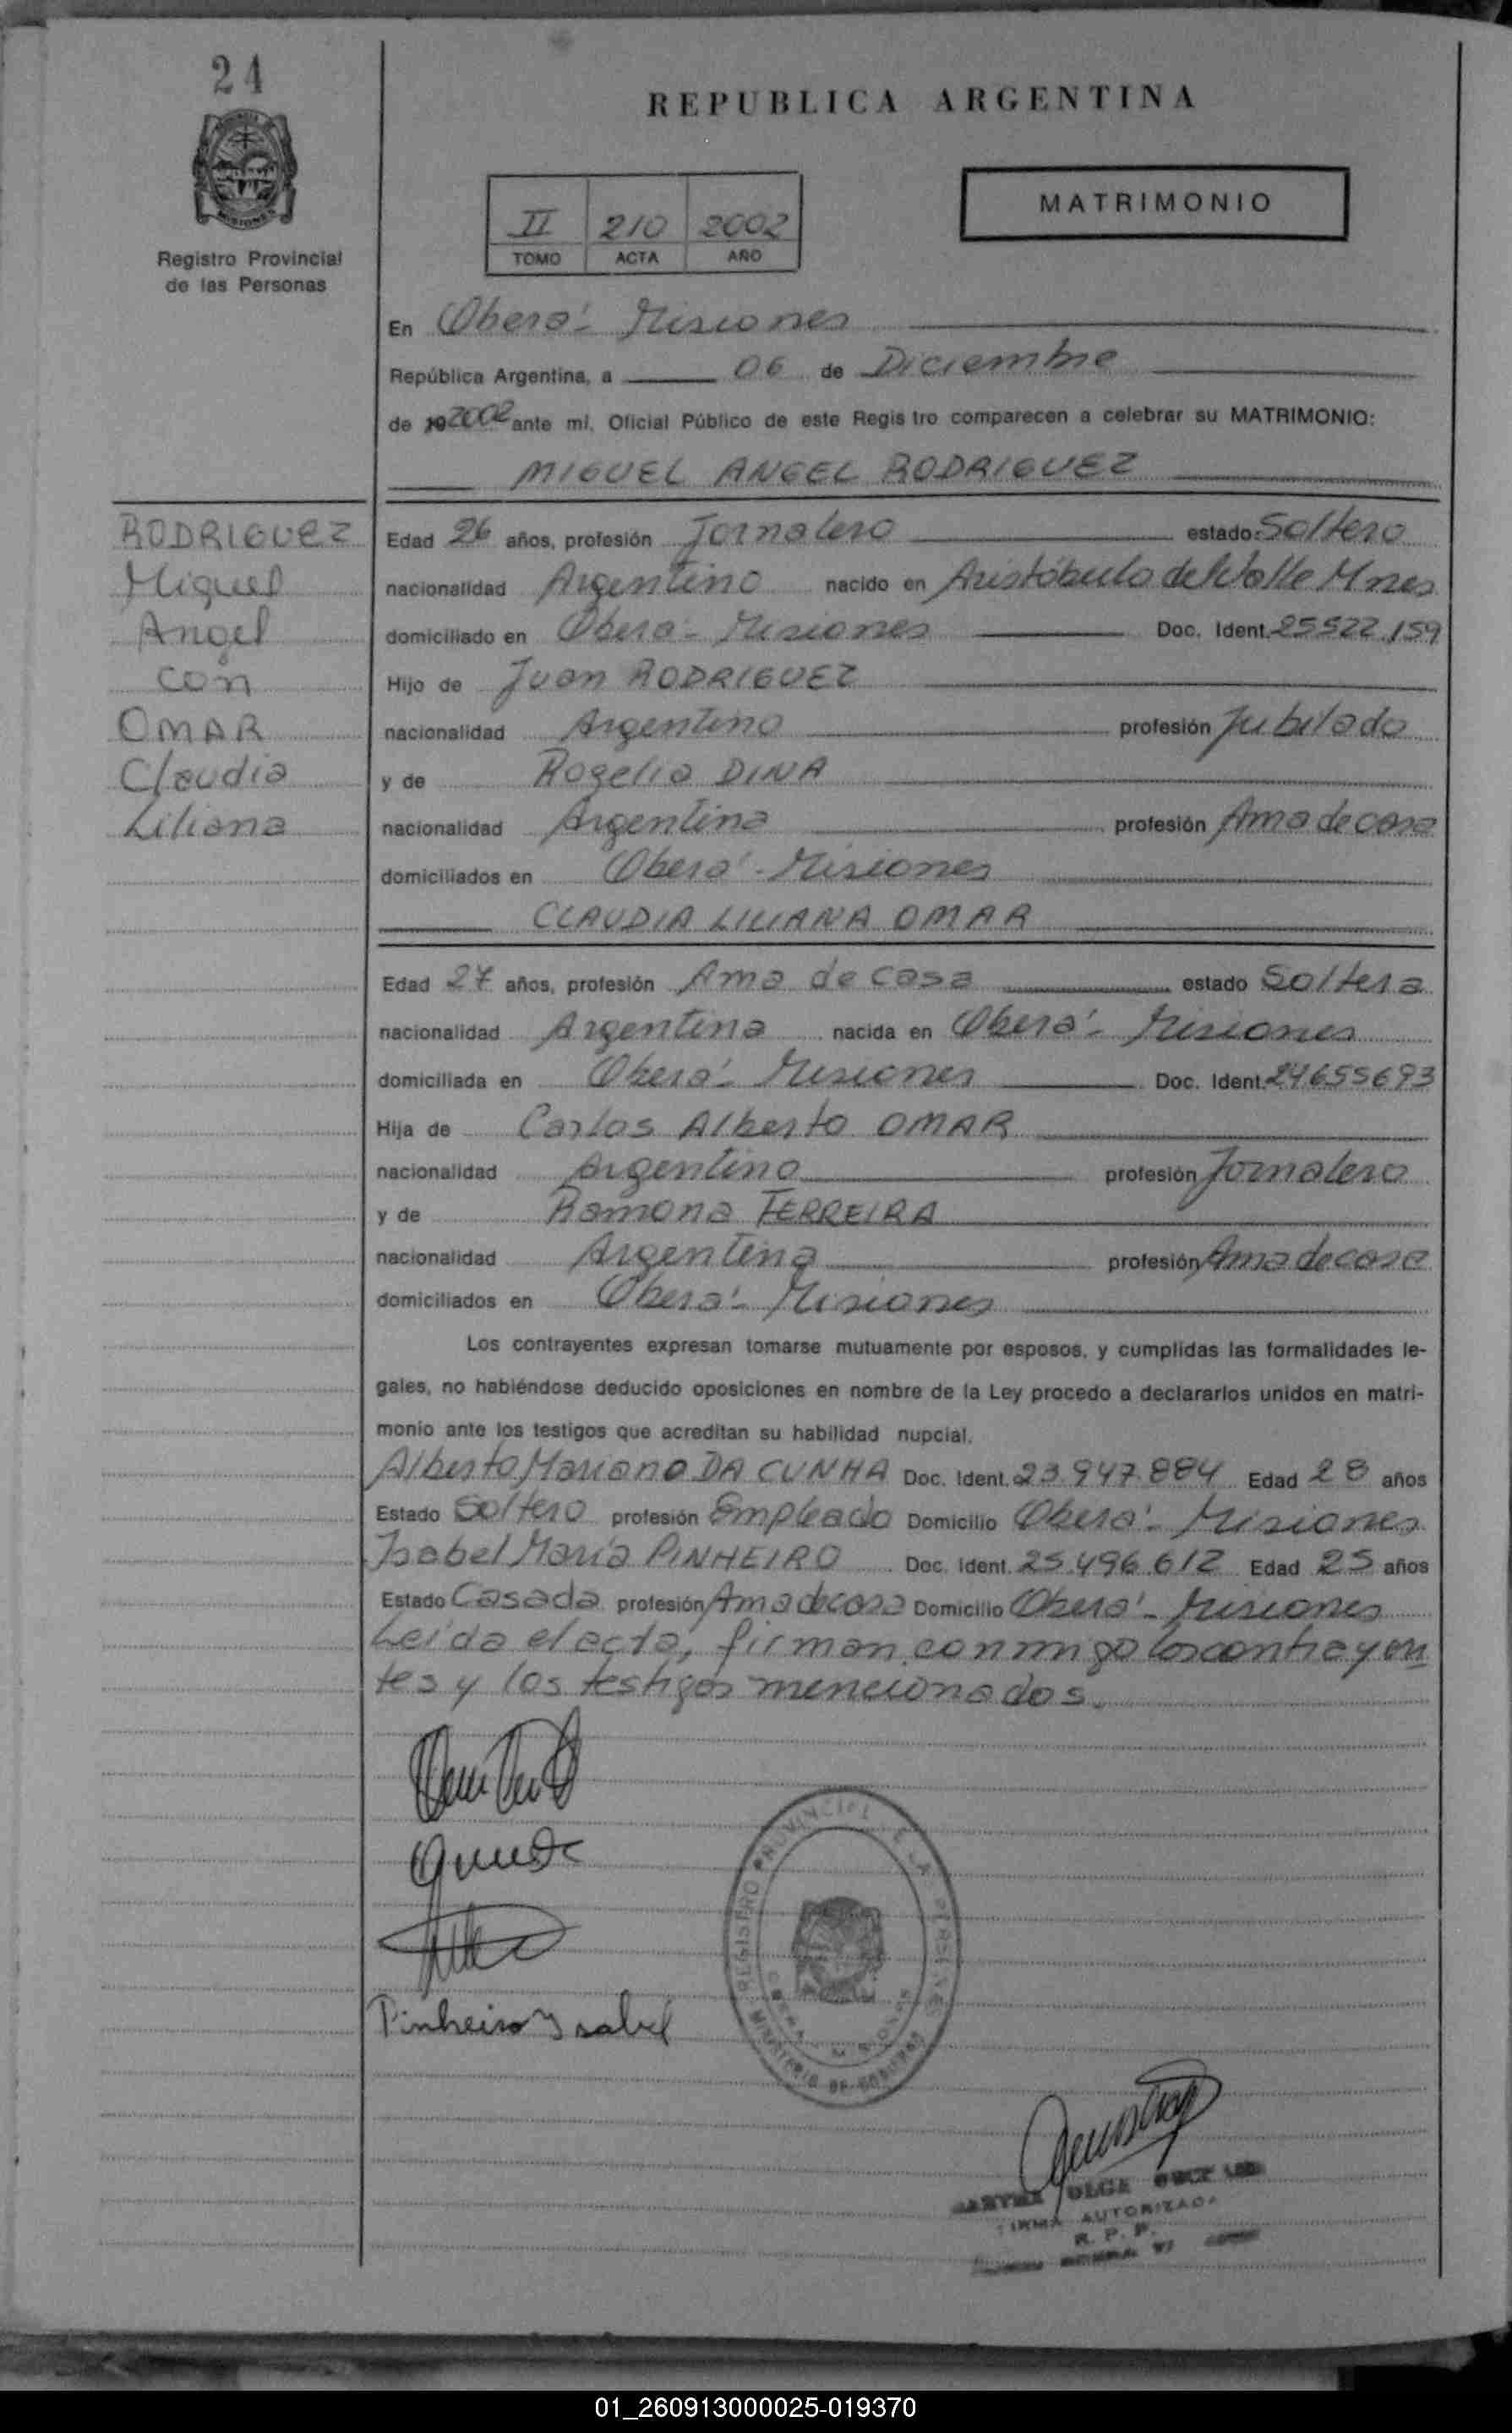 24
REPUBLICA ARGENTINA
MATRIMONIO
II 210 2002
TOMO ACTA AÑO
Registro Provincial
de las Personas
En Oberá - Misiones
República Argentina, a 06 de Diciembre
de 19 2002 ante mí, Oficial Público de este Registro comparecen a celebrar su MATRIMONIO:
MIGUEL ANGEL RODRIGUEZ
RODRIGUEZ
Miguel
Angel
con
OMAR
Claudia
Liliana
Edad 26 años, profesión Jornalero estado: Soltero
nacionalidad Argentino nacido en Aristóbulo del Valle Mnes
domiciliado en Oberá - Misiones Doc. Ident. 25522.159
Hijo de Juan RODRIGUEZ
nacionalidad Argentino profesión Jubilado
y de Rogelia DINA
nacionalidad Argentina profesión Ama de casa
domiciliados en Oberá - Misiones
CLAUDIA LILIANA OMAR
Edad 27 años, profesión Ama de casa estado Soltera
nacionalidad Argentina nacida en Oberá - Misiones
domiciliada en Oberá - Misiones Doc. Ident. 24655693
Hija de Carlos Alberto OMAR
nacionalidad Argentino profesión Jornalero
y de Ramona FERREIRA
nacionalidad Argentina profesión Ama de casa
domiciliados en Oberá - Misiones
Los contrayentes expresan tomarse mutuamente por esposos, y cumplidas las formalidades le-
gales, no habiéndose deducido oposiciones en nombre de la Ley procedo a declararlos unidos en matri-
monio ante los testigos que acreditan su habilidad nupcial.
Alberto Mariano DA CUNHA Doc. Ident. 23.947.884 Edad 28 años
Estado Soltero profesión Empleado Domicilio Oberá - Misiones
Isabel María PINHEIRO Doc. Ident. 25.496.612 Edad 25 años
Estado Casada profesión Ama de casa Domicilio Oberá - Misiones
Leída el acta, firman conmigo los contrayen
tes y los testigos mencionados.
Pinheiro Ysabel
REGISTRO PROVINCIAL DE LAS PERSONAS
MINISTERIO DE GOBIERNO
OLGA
FIRMA AUTORIZADA
R. P. P.
01_260913000025-019370